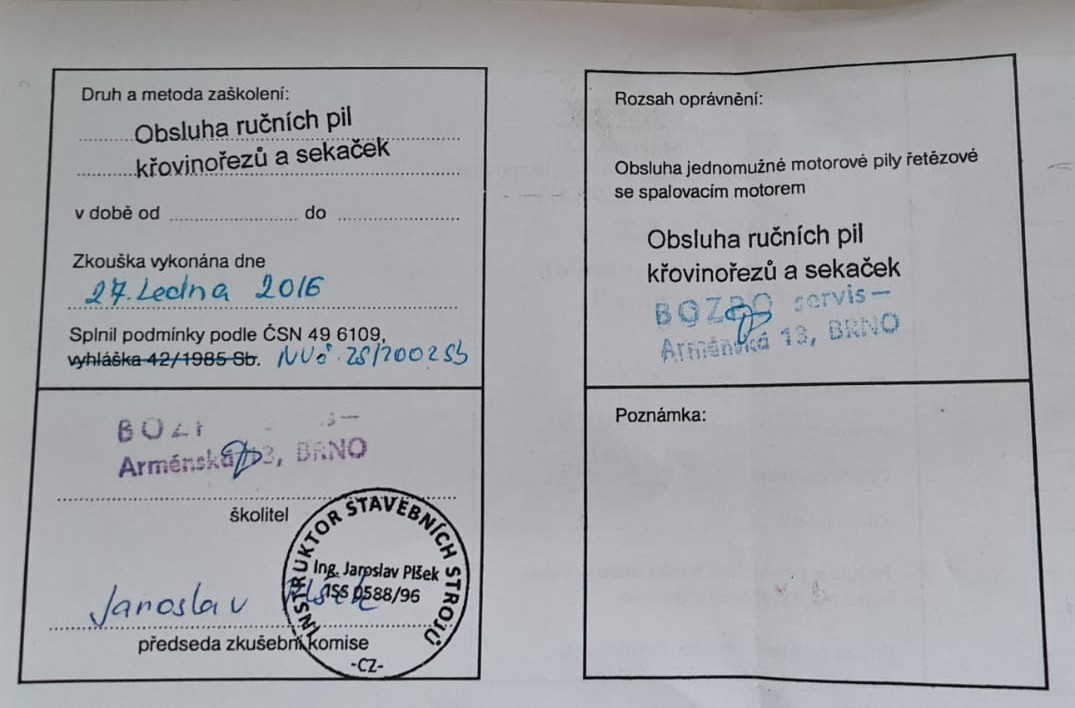 Druh a metoda zaškolení:
Obsluha ručních pil
křovinořezů a sekaček
v době od ........................ do ........................
Zkouška vykonána dne
27. Ledna 2016
Splnil podmínky podle ČSN 49 6109,
vyhláška 42/1985 Sb. NV č. 28/2002 Sb
Arménská 13, BRNO
školitel
Jaroslav Plšek
předseda zkušební komise
INSTRUKTOR STAVEBNÍCH STROJŮ
Ing. Jaroslav Plšek
ISS 0588/96
-CZ-
Rozsah oprávnění:
Obsluha jednomužné motorové pily řetězové
se spalovacím motorem
Obsluha ručních pil
křovinořezů a sekaček
BOZPO servis–
Arménská 13, BRNO
Poznámka: